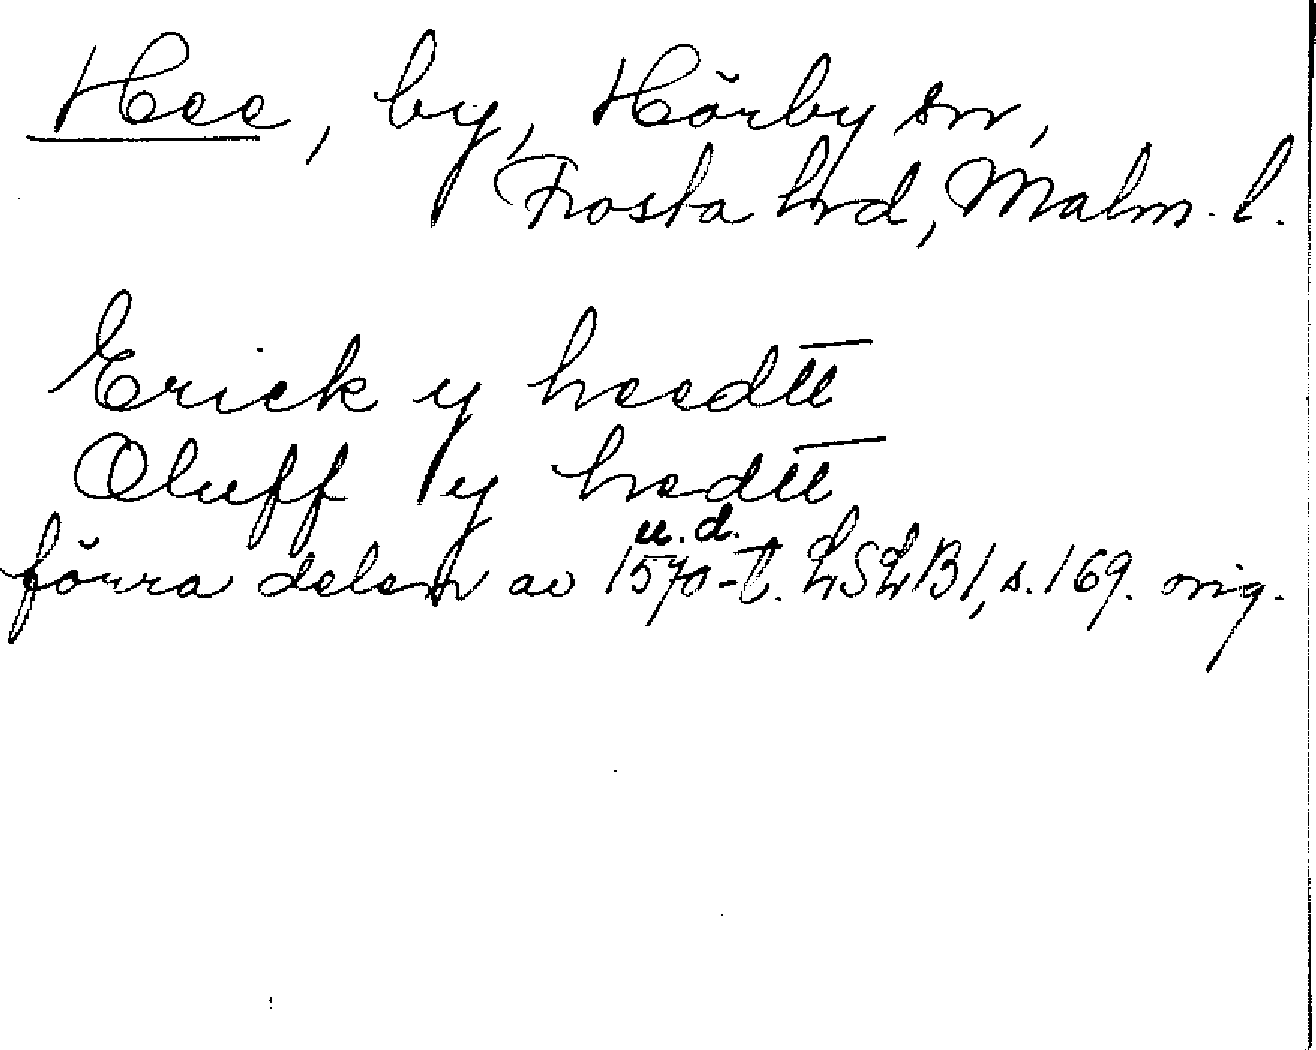 Hee, by, Hörby sn,
Frosta hrd, Malm. l.
Erick y heedtt
Oluff y hedtt
u. d.
förra delen av 1570-t. LSLB1, s. 169. orig.